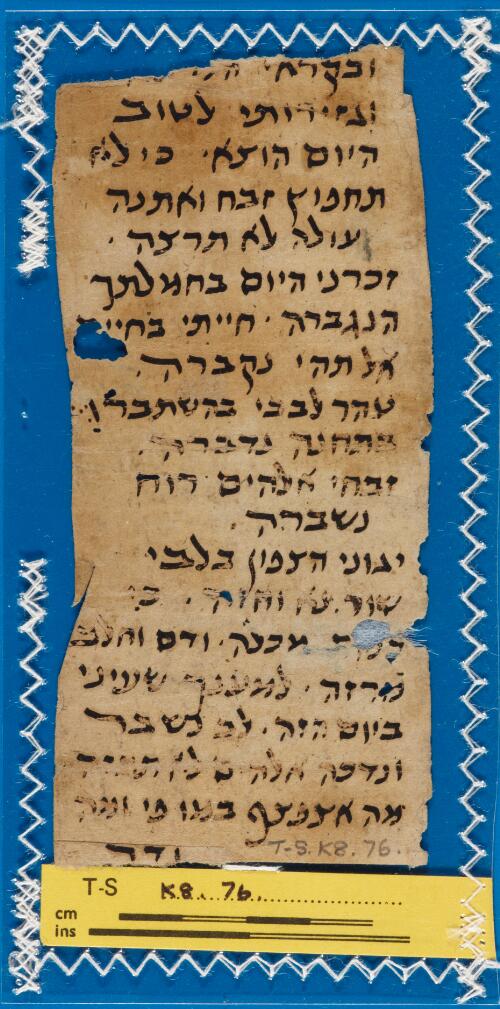 ובקראי
לטוב
היום הוצא׳ כי לא
תחפוץ זבח ואתנה
עולה לא תרצה ׳
זכרני היום בחמלתך
הנגברה ׳ חייתי
אל תהי נקברה ׳
לבבי בהשתברי
נדברה ׳
זבחי אלהים רוח
נשברה ׳
יגוני הצפון בלבי
שור נא וחזה ׳ כי
ודם וחלב
מרזה ׳ למענך שעיני
ביום הזה ׳ לב נשבר
ונדכה אלהים לא תבזה
מה אצפצף במו פי ומה
T-S.K8.76.
T-S K8. 76.
cm
ins